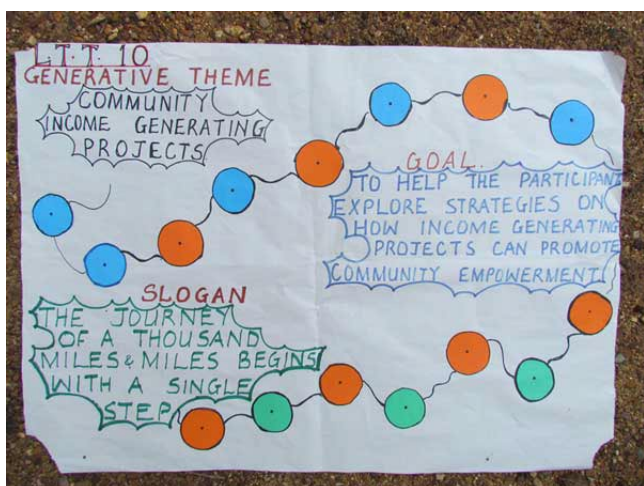 L.T.T. 10
GENERATIVE THEME
COMMUNITY
INCOME GENERATING
PROJECTS
GOAL.
TO HELP THE PARTICIPANT
EXPLORE STRATEGIES ON
HOW INCOME GENERATING
PROJECTS CAN PROMOTE
COMMUNITY EMPOWERMENT.
SLOGAN
THE JOURNEY
OF A THOUSAND
MILES & MILES BEGINS
WITH A SINGLE
STEP